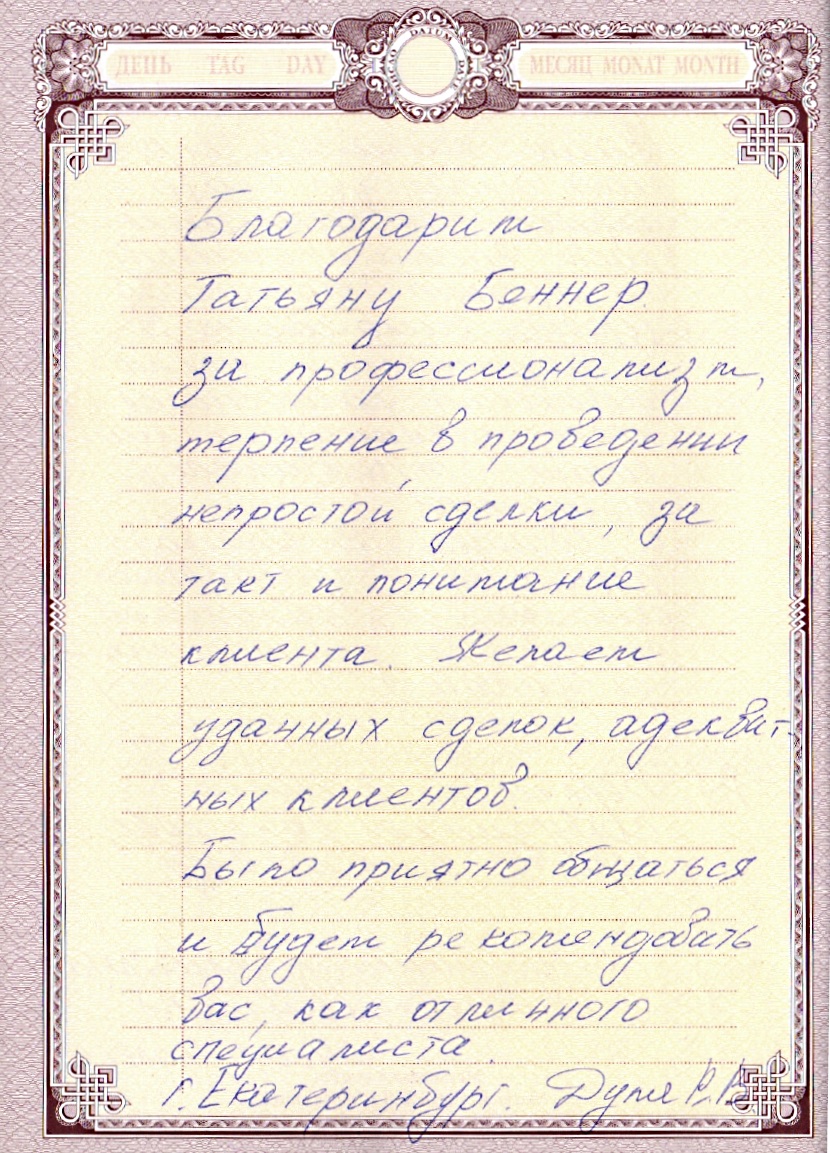 ДЕНЬ TAG DAY
DATUM
МЕСЯЦ MONAT MONTH
Благодарим
Татьяну Беннер
за профессионализм,
терпение в проведении
непростой сделки, за
такт и понимание
клиента. Желаем
удачных сделок, адекват-
ных клиентов.
Было приятно общаться
и будем рекомендовать
вас, как отличного
специалиста.
г. Екатеринбург.